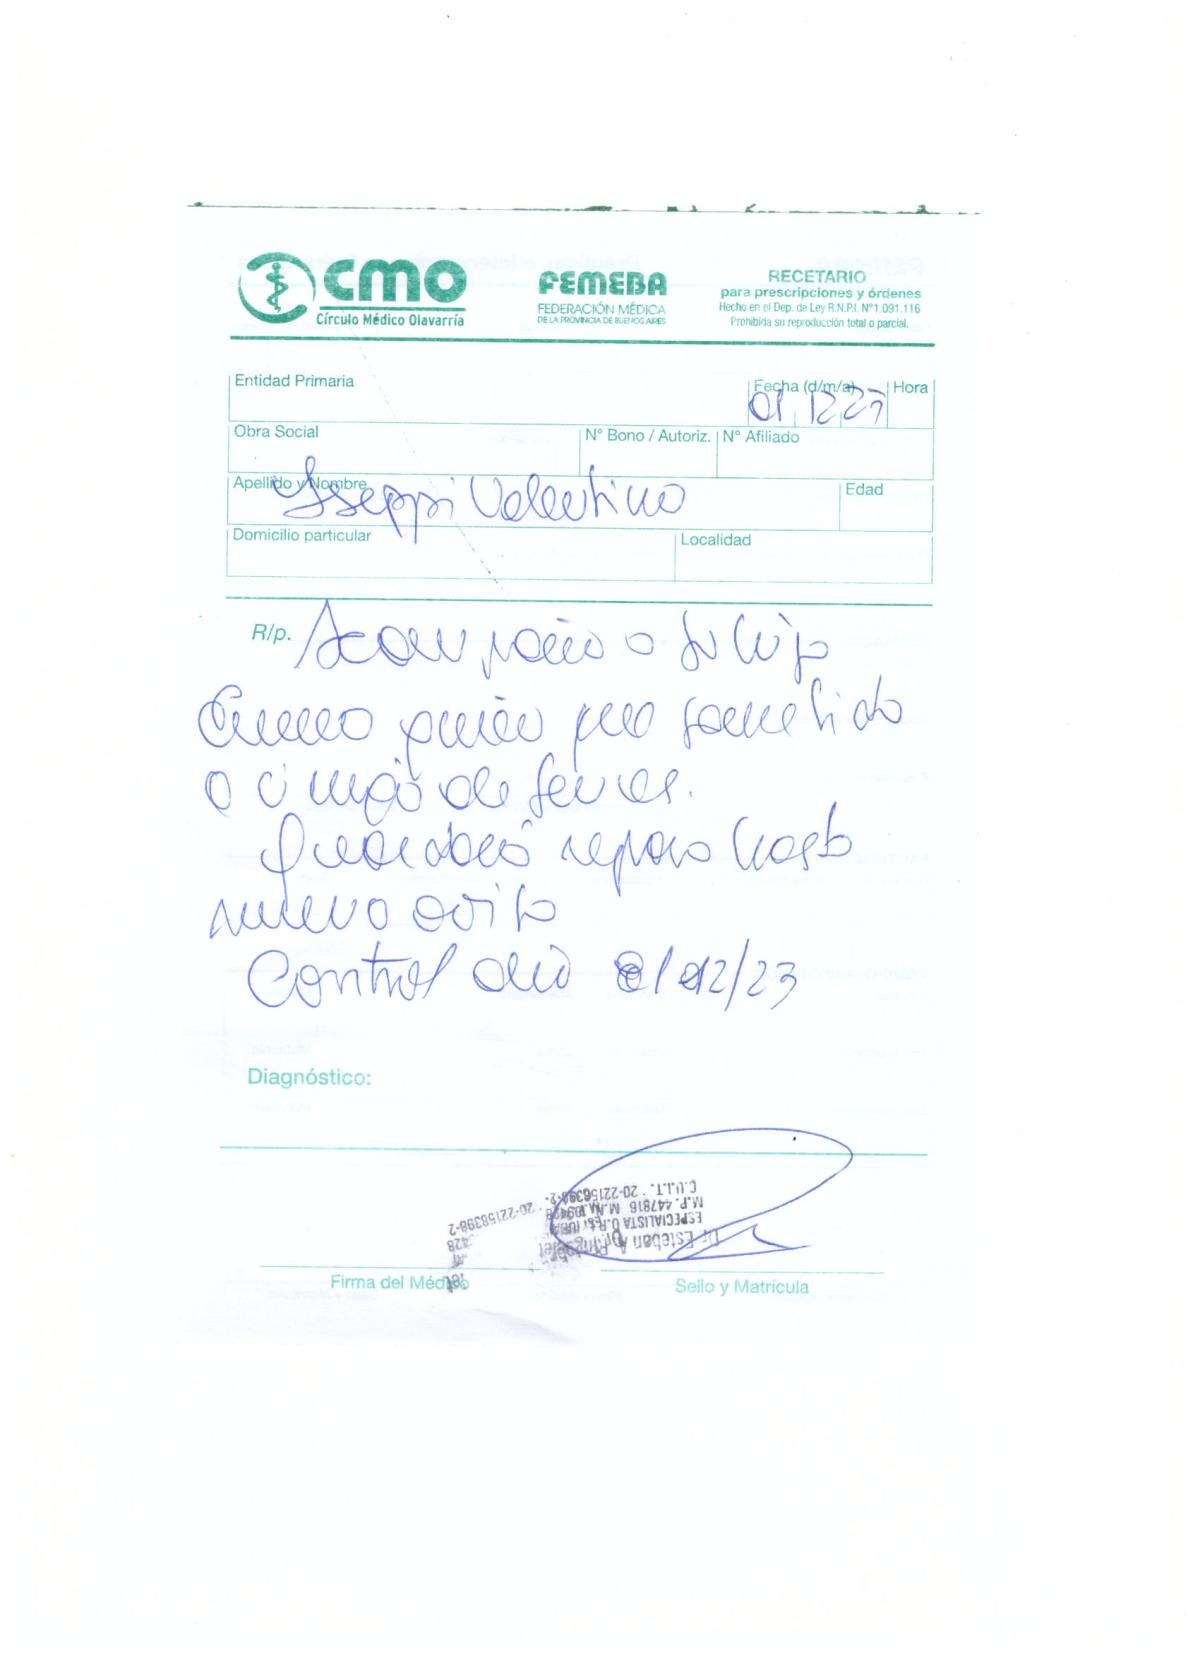 CMO
Círculo Médico Olavarría
FEMEBA
FEDERACIÓN MÉDICA
DE LA PROVINCIA DE BUENOS AIRES
RECETARIO
para prescripciones y órdenes
Hecho en el Dep. de Ley R.N.P.I. N°1.091.116
Prohibida su reproducción total o parcial.
Entidad Primaria
Fecha (d/m/a)
Hora
01 12 23
Obra Social
N° Bono / Autoriz.
N° Afiliado
Apellido y Nombre
Valentino
Edad
Domicilio particular
Localidad
R/p.
Acompaño a su hijo
quien fue sometido
a
Guardará reposo hasta
nuevo aviso
Control día /12/23
Diagnóstico:
Dr. Esteban A.
ESPECIALISTA
M.P. 447816 M.N.
C.U.I.T. 20-22158398-2
20-22158398-2
428
Firma del Médico
Sello y Matrícula